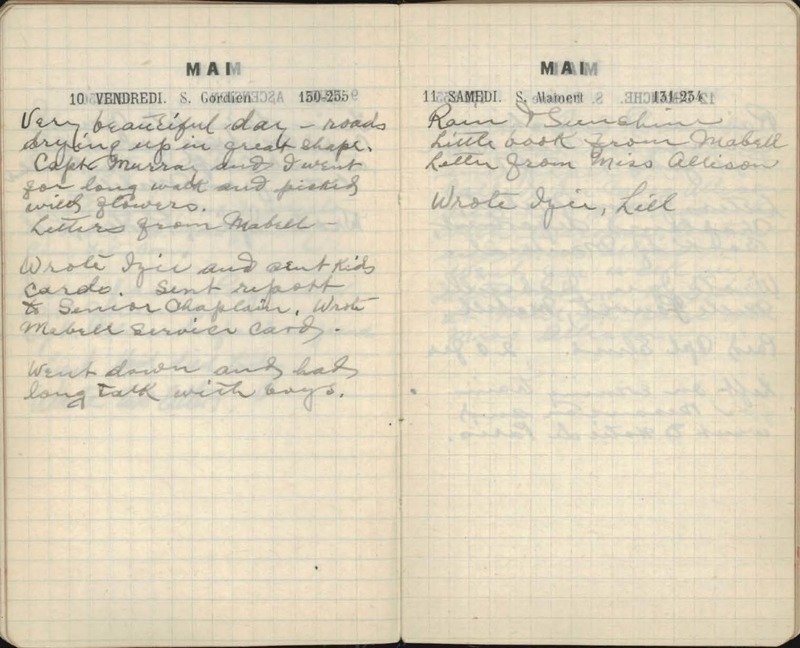 MAI
10 VENDREDI. S. Gordien 130-235
Very beautiful day - roads
drying up in great shape.
Capt Murray and I went
for long walk and picked
wild flowers.
Letters from Mabell -
Wrote Izie and sent Kids
cards. Sent report
to Senior Chaplain. Wrote
Mabell Service Card.
Went down and had
long talk with boys.
MAI
11 SAMEDI. S. Mamert 131-234
Rain & Sunshine
Little book from Mabell
Letter from Miss Allison
Wrote Izie, Lill